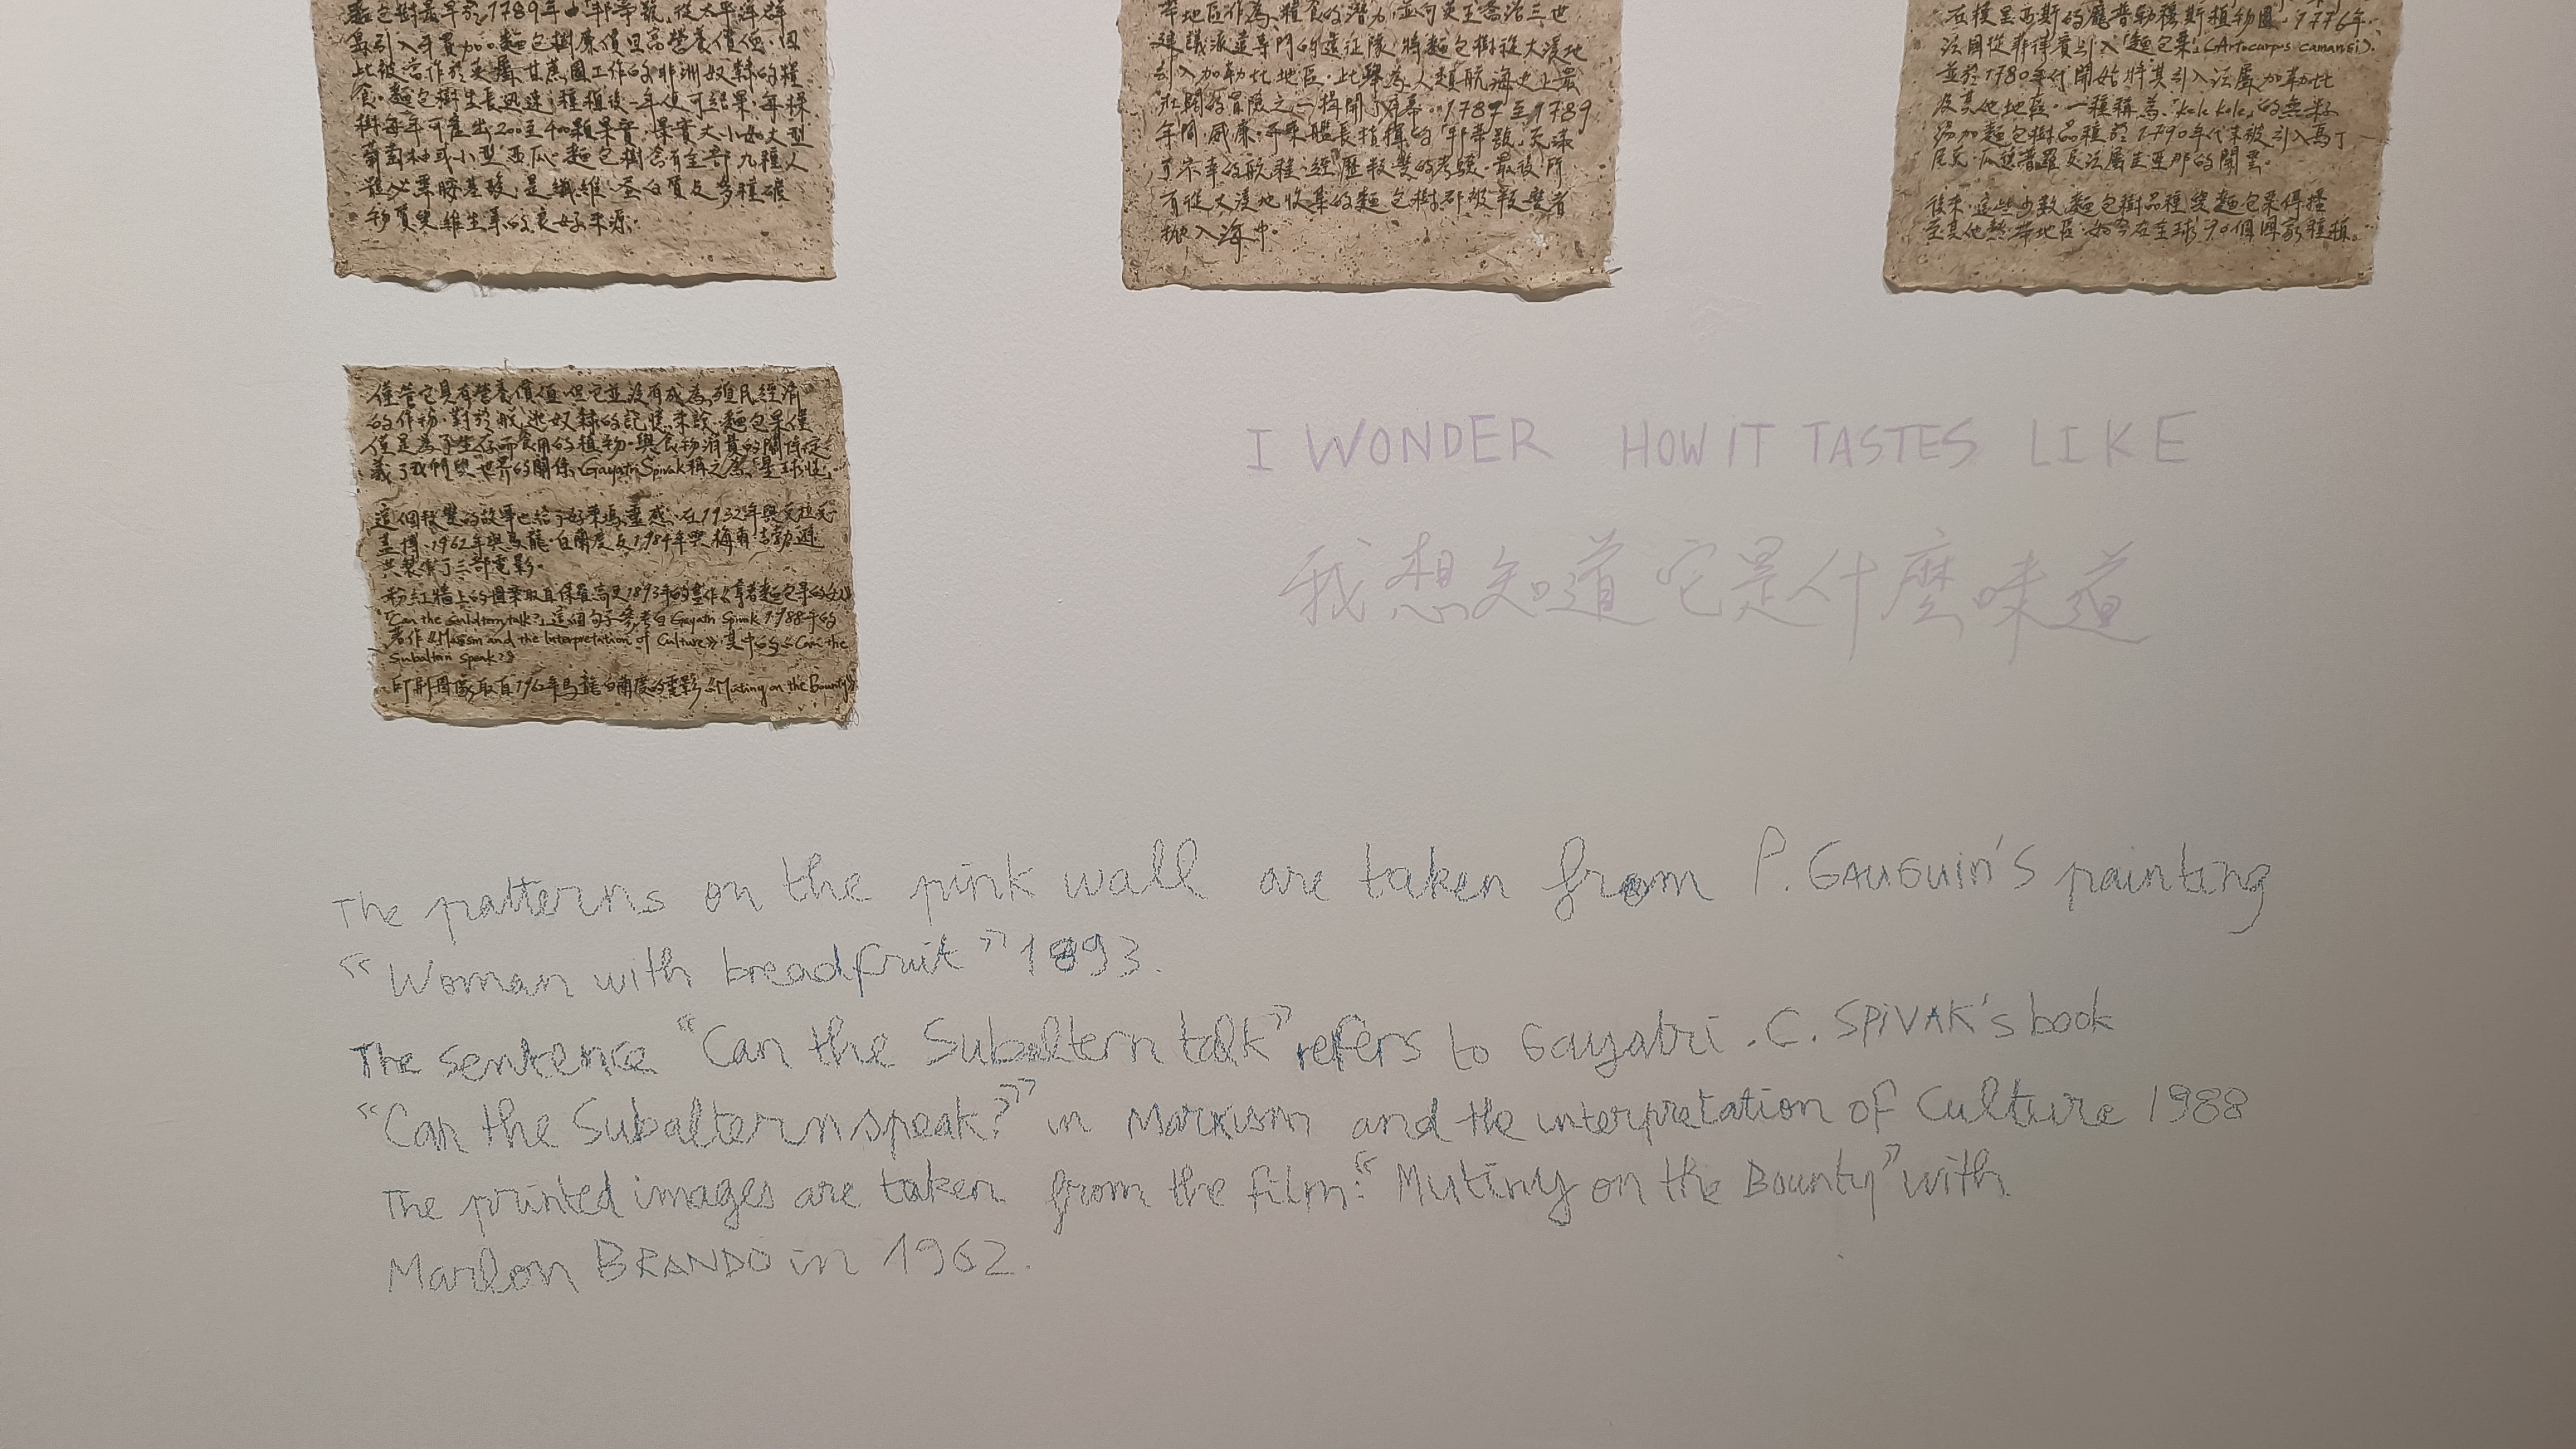 麵包樹最早於1789年由「邦蒂號」從太平洋群
島引入牙買加。麵包樹廉價且高營養價值,因
此被當作於英屬甘蔗園工作的非洲奴隸的糧
食。麵包樹生長迅速,種植後一年便可結果,每棵
樹每年可產出200至400顆果實,果實大小如大型
葡萄柚或小型西瓜。麵包樹含有全部九種人
體必需胺基酸,是纖維、蛋白質及多種礦
物質與維生素的良好來源。
帶地區作為糧食的潛力,並向英王喬治三世
建議派遣專門的遠征隊,將麵包樹從大溪地
引入加勒比地區。此舉為人類航海史上最
壯闊的冒險之一揭開了序幕。1787至1789
年間,威廉·布萊艦長指揮的「邦蒂號」
了不幸的航程,經歷叛變的考驗,最後所
有從大溪地收集的麵包樹都被叛變者
拋入海中。
在模里西斯的龐普勒穆斯植物園。1776年,
法國從菲律賓引入「麵包果」(Artocarpus camansi),
並於1780年代開始將其引入法屬加勒比
及其他地區。一種稱為「kele kele」的無籽
麵包樹品種於1790年代末被引入馬丁
尼克、瓜德普羅及法屬圭亞那的開雲。
後來,這些少數麵包樹品種與麵包果傳播
至其他熱帶地區,如今在全球90個國家種植。
僅管它具有營養價值,但它並沒有成為殖民經濟
的作物。對於脫逃奴隸的記憶來說,麵包果僅
僅是為了生存而食用的植物。與食物消費的關係定
義了我們與世界的關係,Gayatri Spivak稱之為「星球性」。
這個叛變的故事也給了好萊塢靈感,在1932年與艾拉夫
·圭博、1962年與馬龍·白蘭度及1984年與梅爾·吉勃遜
共製作了三部電影。
粉紅牆上的圖案取自保羅高更1893年的畫作《拿著麵包果的女人》
「Can the Subaltern talk?」這個句子參考自Gayatri Spivak 1988年的
著作《Marxism and the Interpretation of Culture》其中的《Can the
Subaltern Speak?》
印刷圖像取自1962年馬龍白蘭度的電影《Mutiny on the Bounty》
I WONDER HOW IT TASTES LIKE
我想知道它是什麼味道
The patterns on the pink wall are taken from P. GAUGUIN'S painting
"Woman with breadfruit" 1893.
The sentence "Can the Subaltern talk" refers to Gayatri .C. SPIVAK's book
"Can the Subaltern speak?" in Marxism and the interpretation of Culture 1988
The printed images are taken from the film: "Mutiny on the Bounty" with
Marlon BRANDO in 1962.